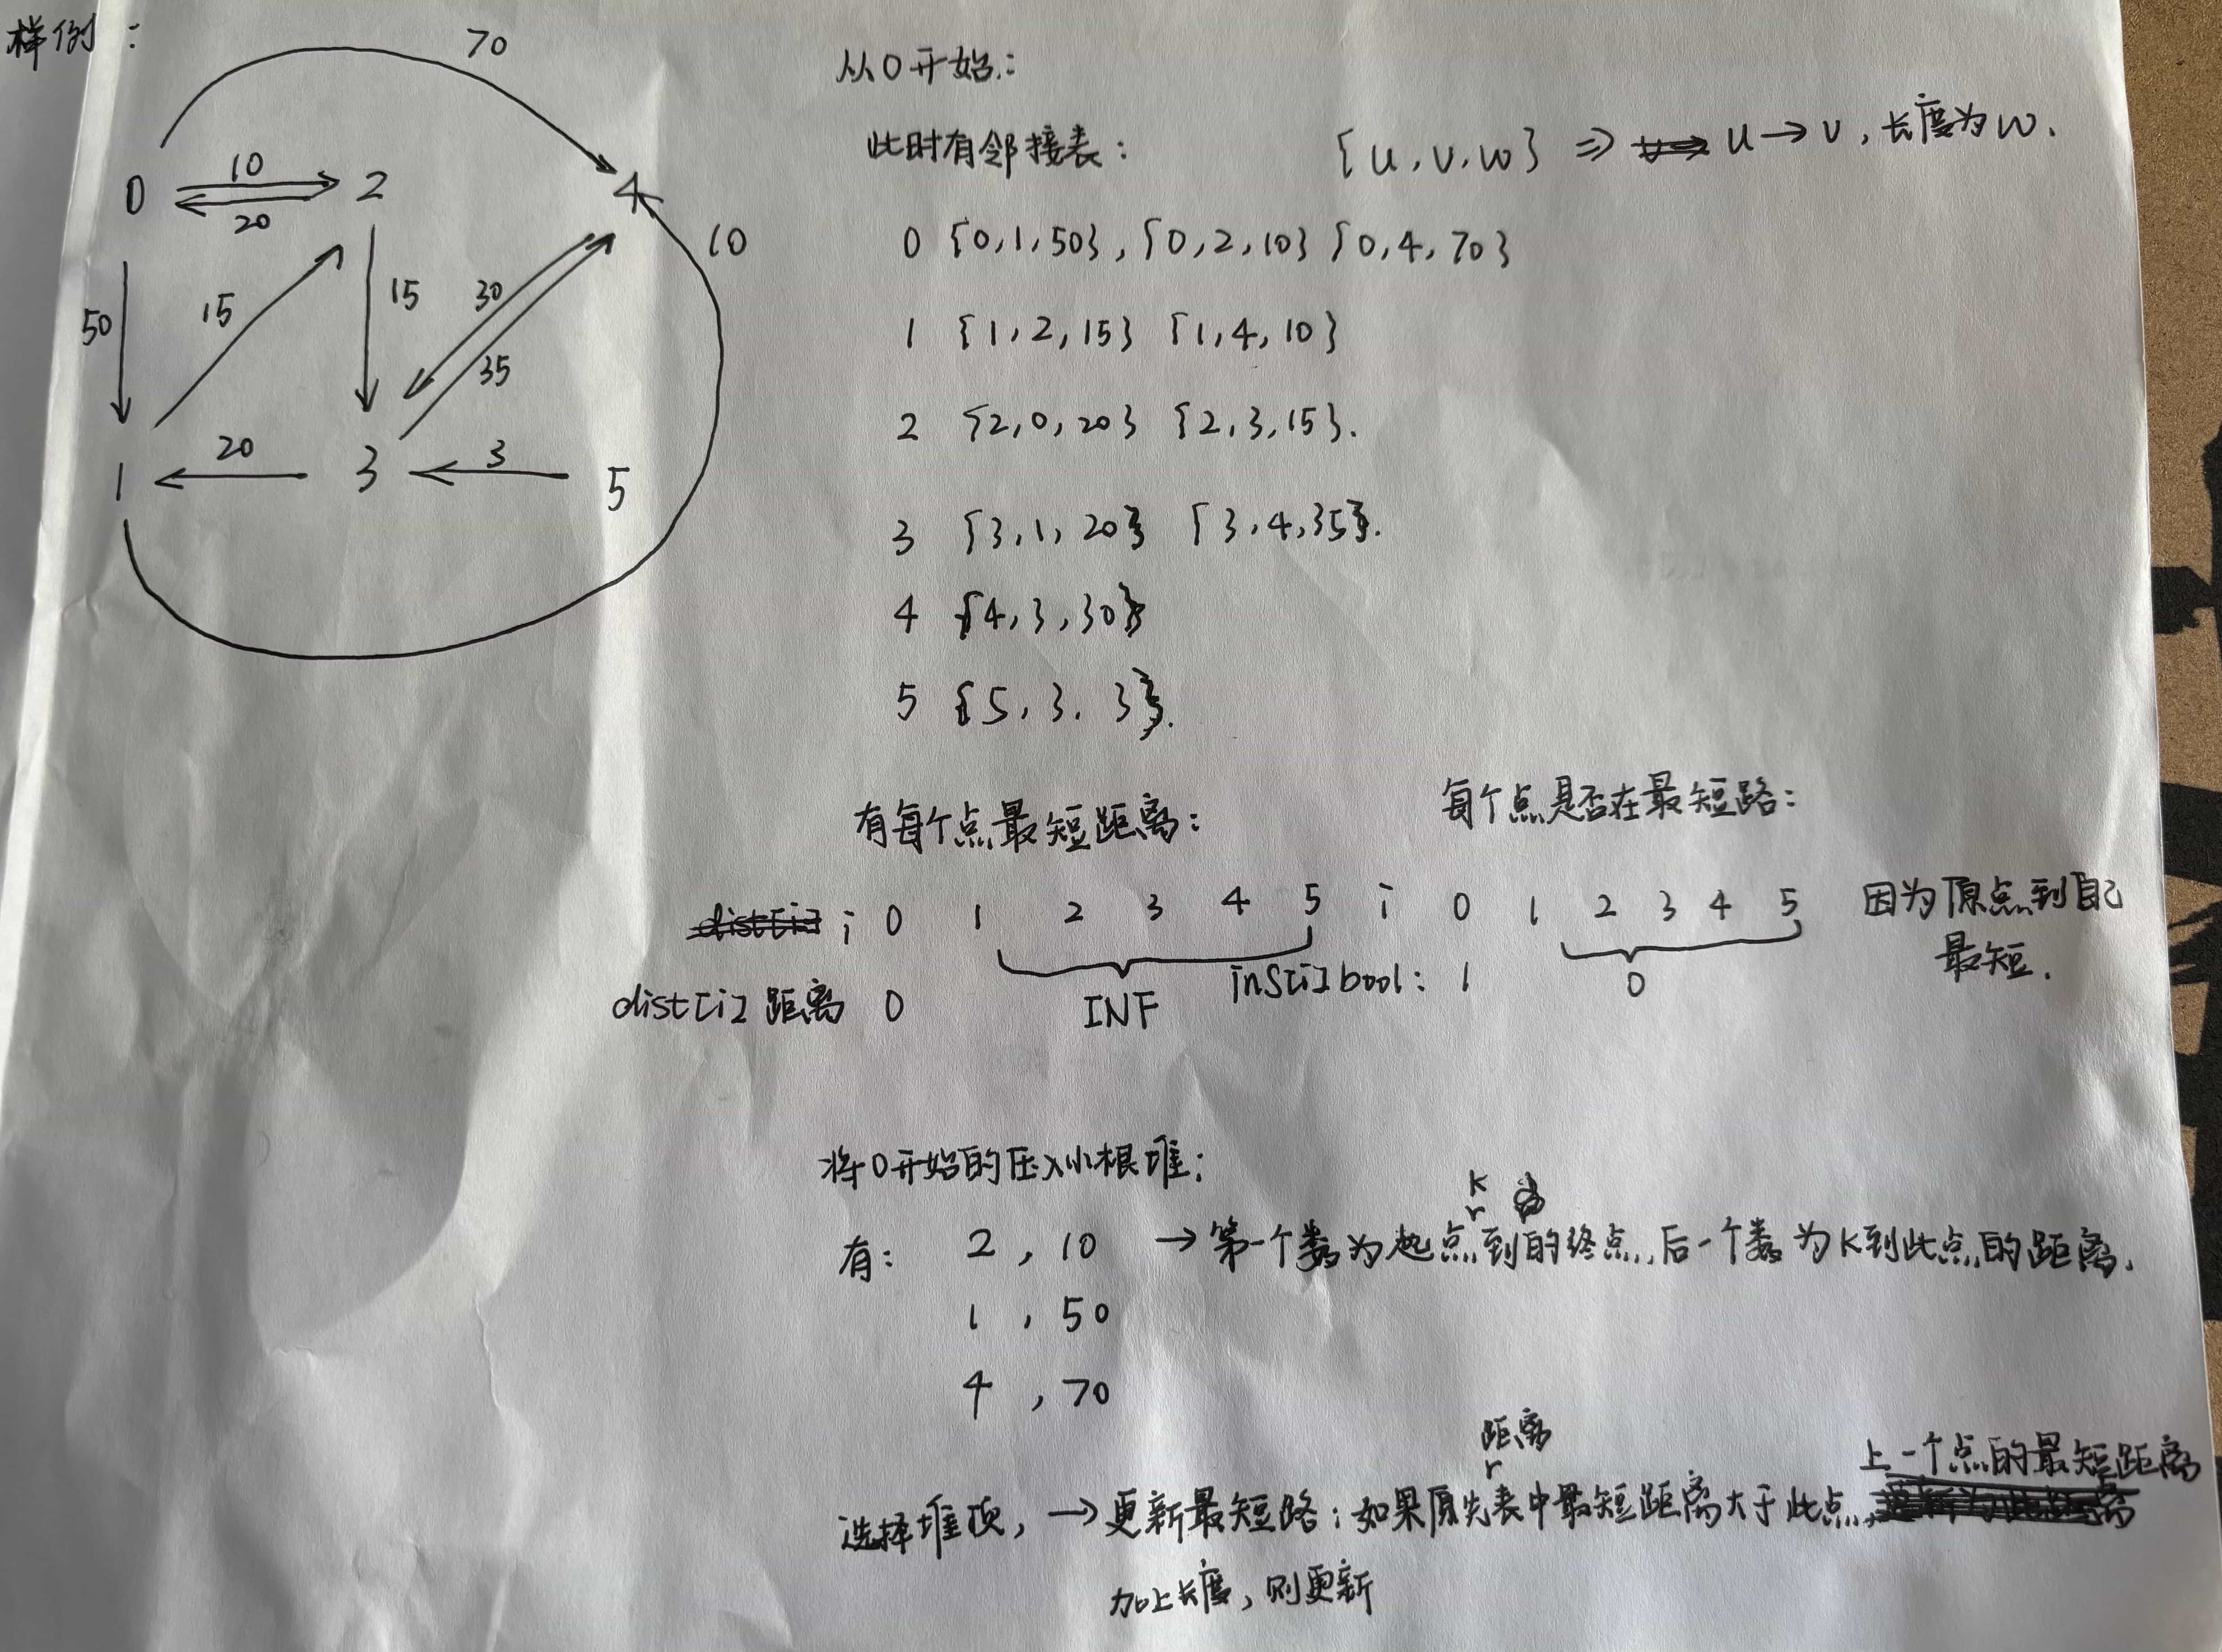 样例：
70
10
0 2 4
20
10
50 15 15 30
35
20 3
1 3 5
从0开始：
此时有邻接表： {u,v,w} => u→v，长度为w.
0 {0,1,50},{0,2,10} {0,4,70}
1 {1,2,15} {1,4,10}
2 {2,0,20} {2,3,15}.
3 {3,1,20} {3,4,35}.
4 {4,3,30}
5 {5,3,3}.
有每个点最短距离： 每个点是否在最短路：
i 0 1 2 3 4 5 i 0 1 2 3 4 5 因为原点到自己
最短.
dist[i] 距离 0 INF inS[i] bool: 1 0
将0开始的压入小根堆：
k
有： 2，10 →第一个数为起点到的终点，后一个数为k到此点的距离.
1，50
4，70
距离 上一个点的最短距离
选择堆顶，→更新最短路：如果原先表中最短距离大于此点
加上长度，则更新